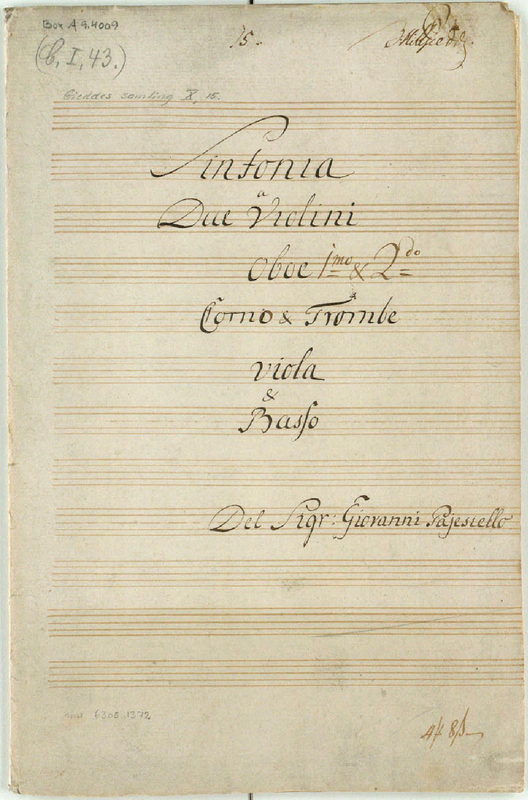 Box A 9.4009
(C, I, 43.)
15.
Gieddes samling X, 15.
Sinfonia
a
Due Violini
Oboe 1mo & 2do
Corno & Trombe
Viola
&
Basso
Del Sigr: Giovanni Pajesiello
6308.1372